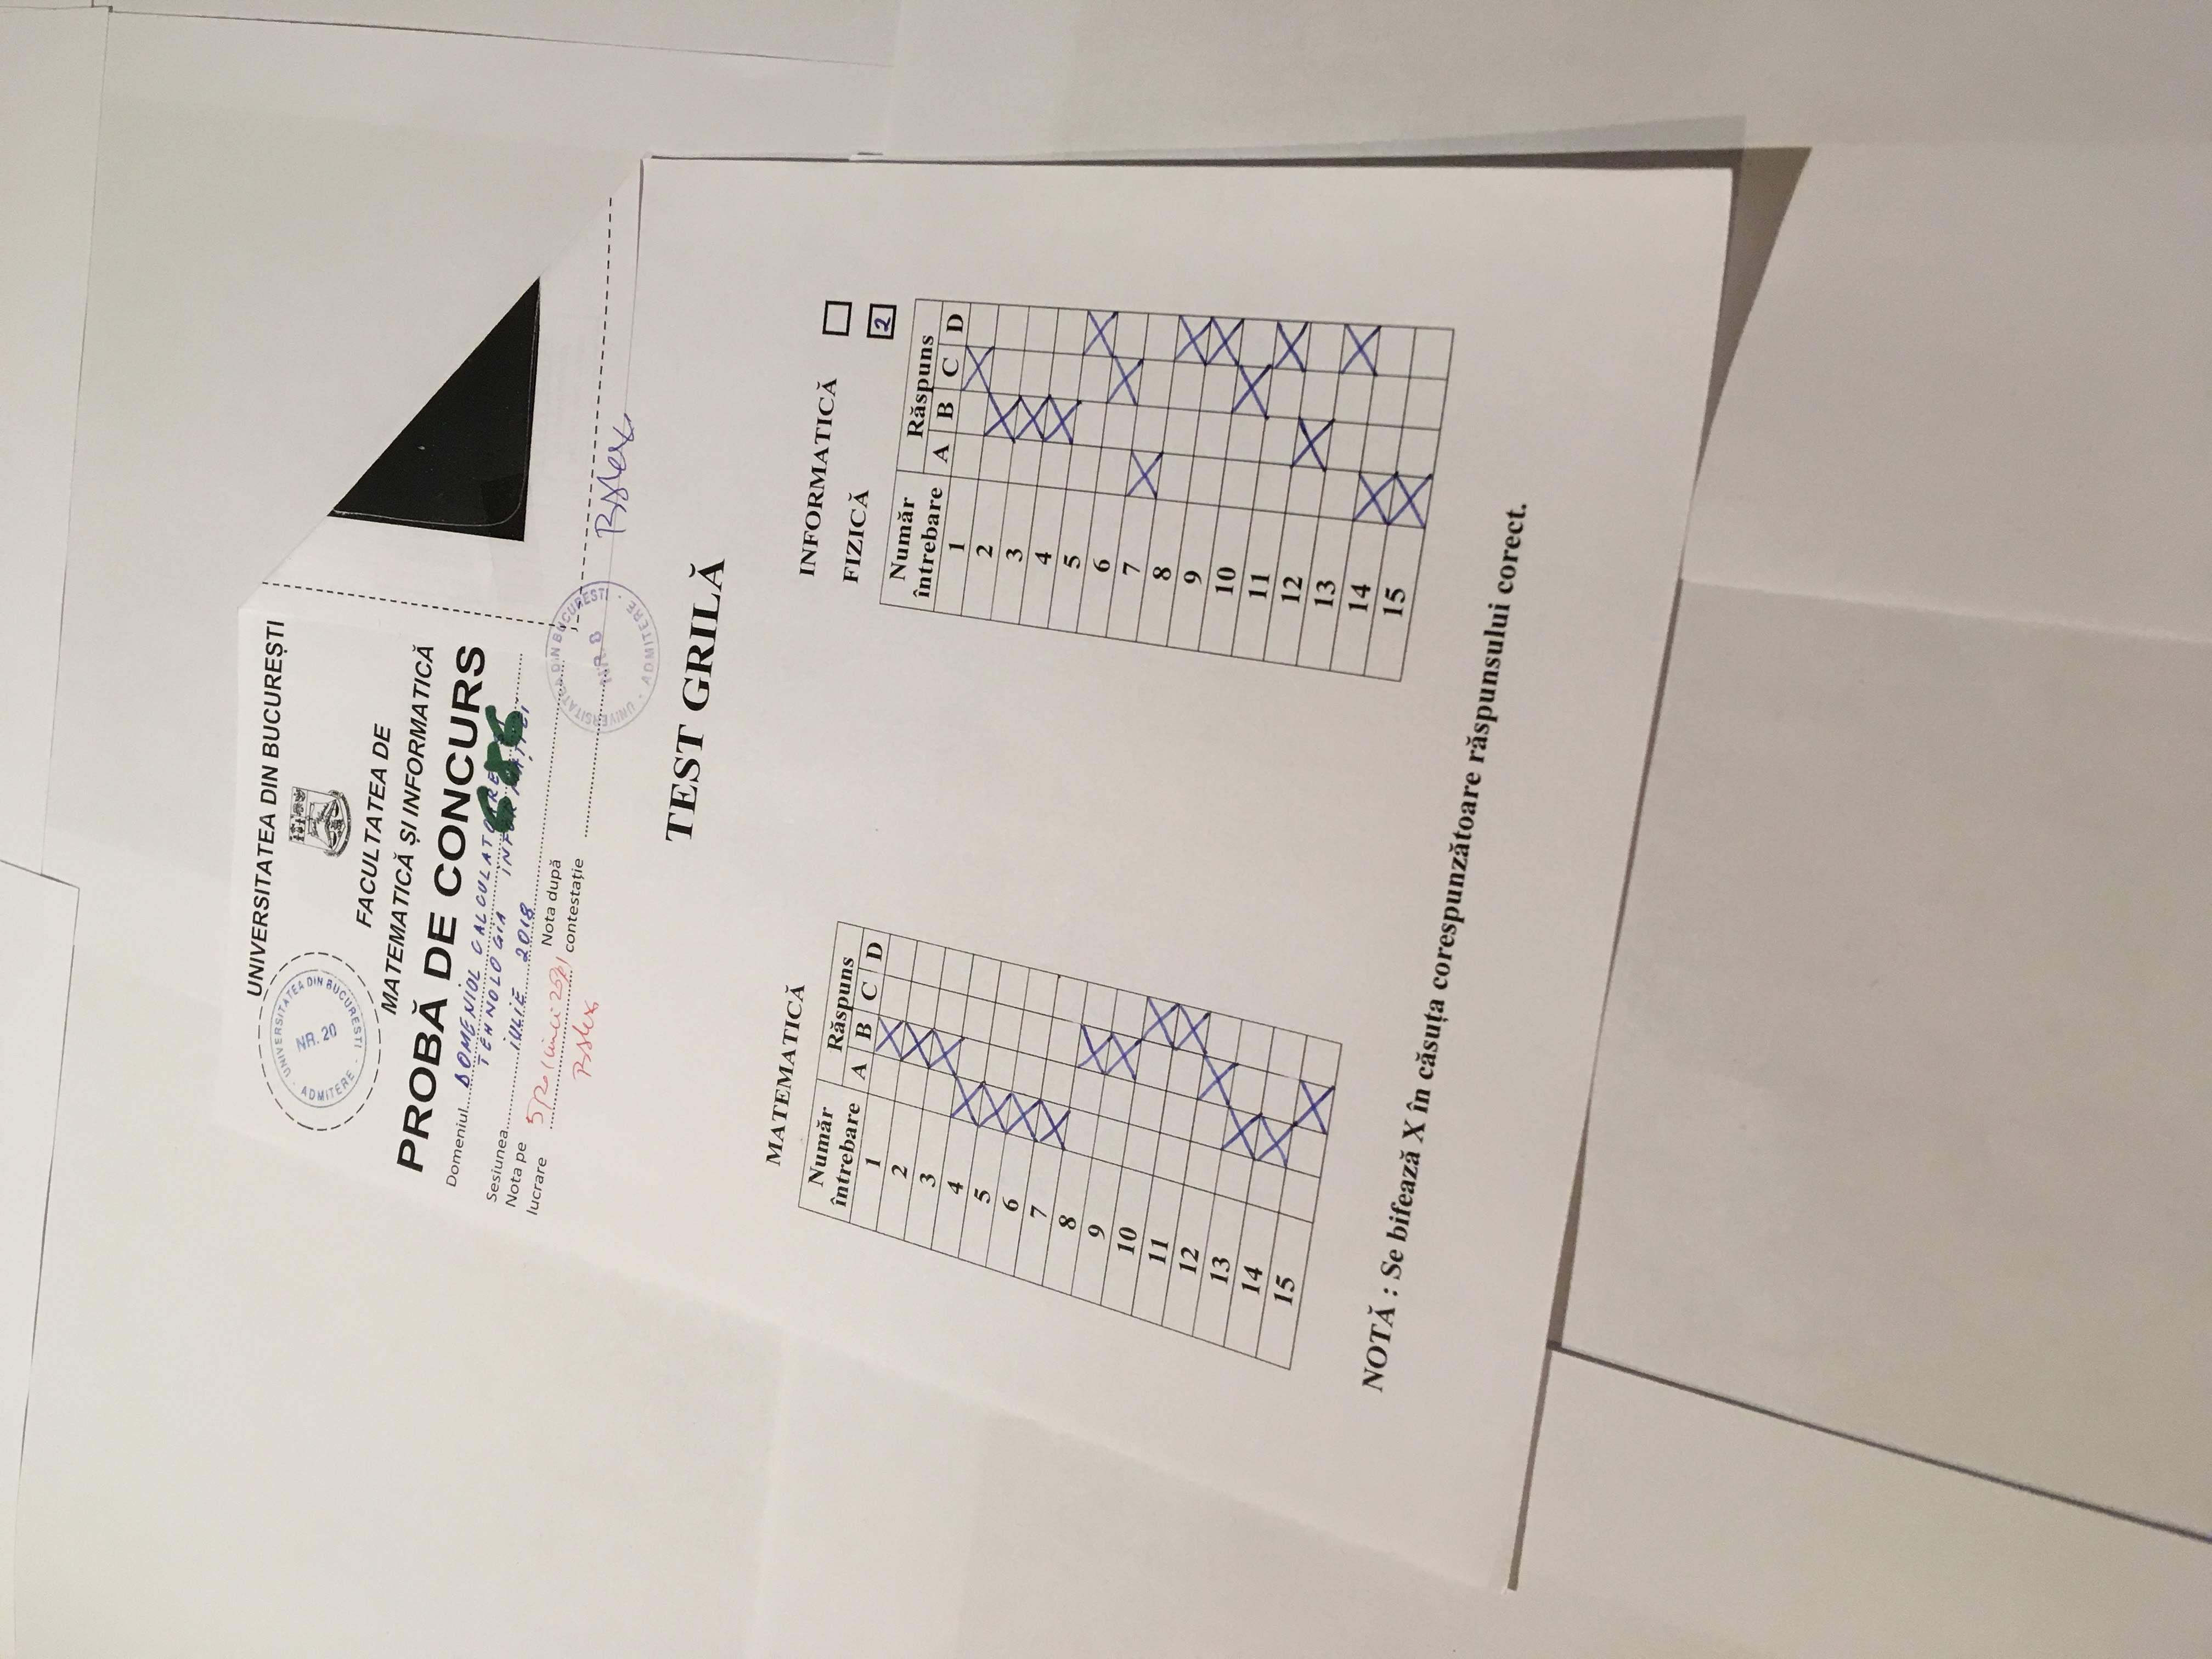 UNIVERSITATEA DIN BUCUREȘTI
UNIVERSITATEA DIN BUCURESTI · ADMITERE ·
NR. 20
FACULTATEA DE
MATEMATICĂ ȘI INFORMATICĂ
PROBĂ DE CONCURS
Domeniul DOMENIUL CALCULATOARE
686
TEHNOLOGIA INFORMAȚIEI
Sesiunea IULIE 2018
Nota pe
lucrare
Nota după
contestație
UNIVERSITATEA DIN BUCURESTI · ADMITERE ·
NR. 8
TEST GRILĂ
MATEMATICĂ
Număr
întrebare
Răspuns
A B C D
1 X
2 X
3 X
4 X
5 X
6 X
7 X
8 X
9 X
10 X
11 X
12 X
13 X
14 X
15 X
INFORMATICĂ
FIZICĂ 2
Număr
întrebare
Răspuns
A B C D
1 X
2 X
3 X
4 X
5 X
6 X
7 X
8 X
9 X
10 X
11 X
12 X
13 X
14 X
15 X
NOTĂ : Se bifează X în căsuța corespunzătoare răspunsului corect.